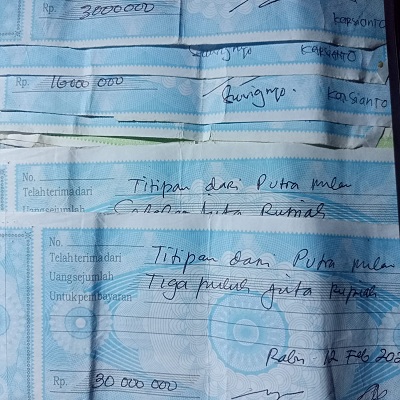 Rp. 3000000
KARSIANTO
KARSIANTO
Rp. 16000 000
KARSIANTO
No.
Telah terima dari Titipan dari Putra
Uangsejumlah Juta Rupiah
No.
Telah terima dari Titipan dari Putra
Uangsejumlah Tiga puluh juta rupiah
Untuk pembayaran
Rabu 12 Feb 202
Rp. 30 000 000